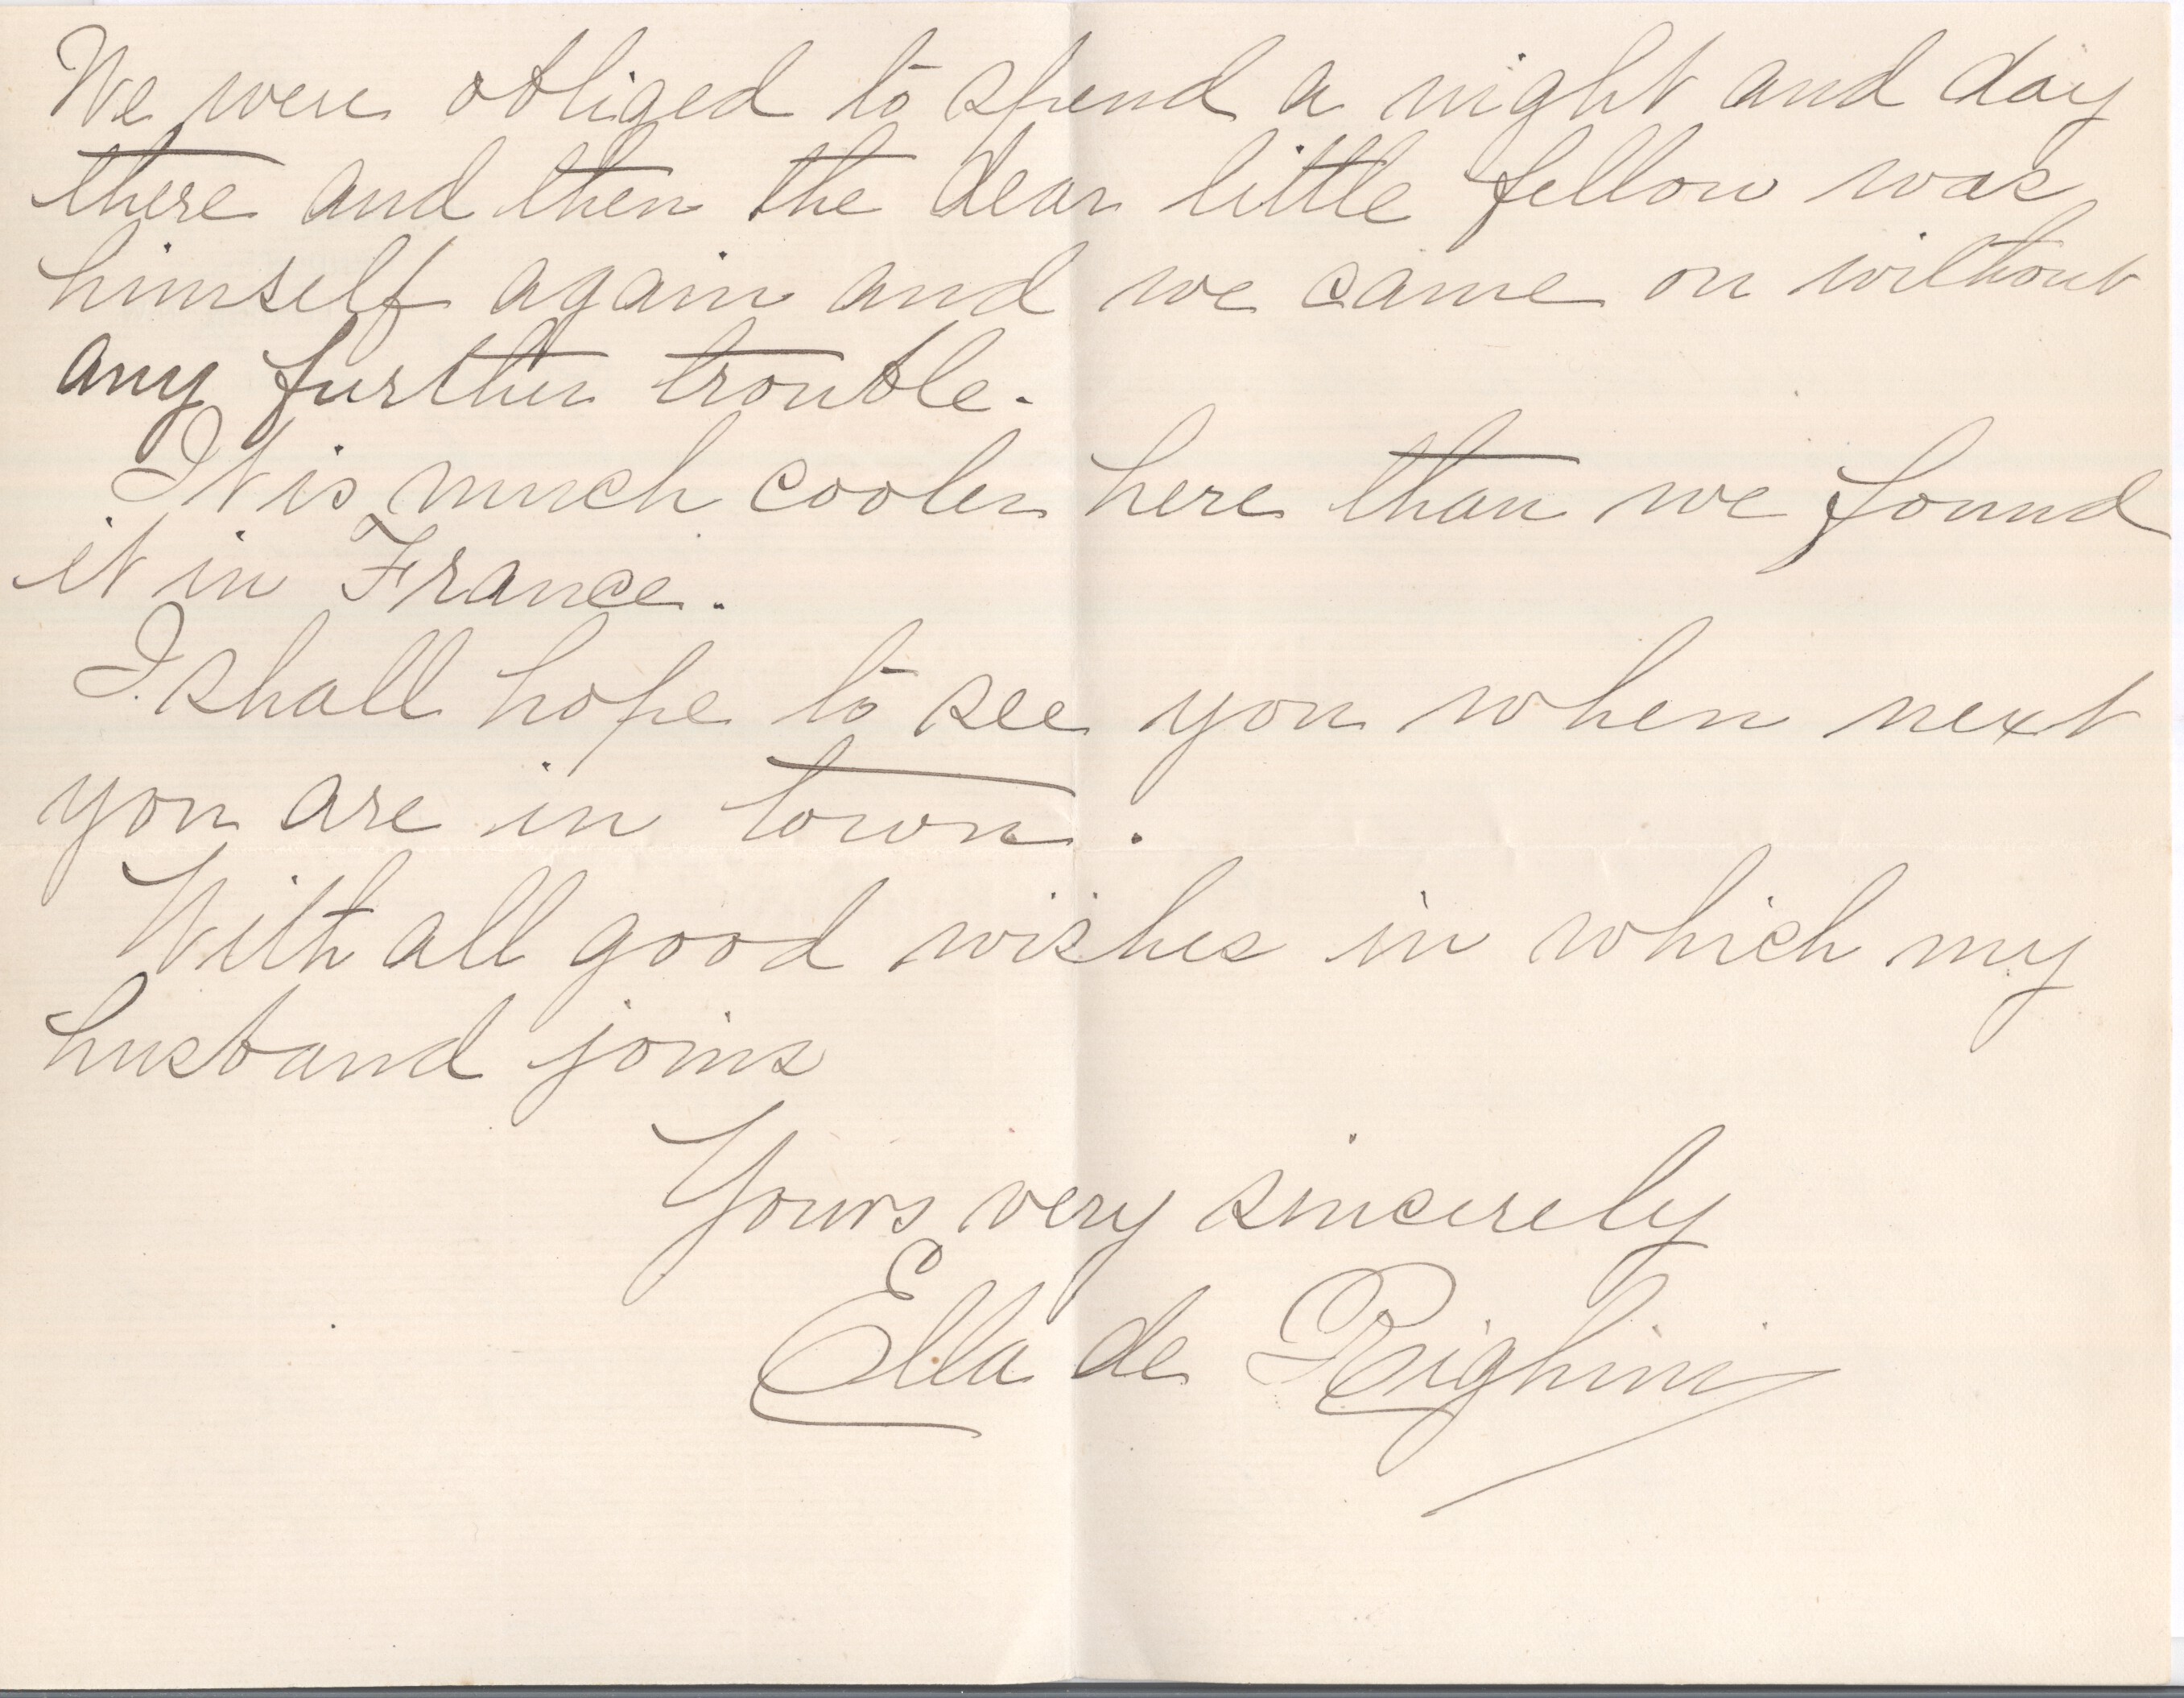 We were obliged to spend a night and day
there and then the dear little fellow was
himself again and we came on without
any further trouble.
It is much cooler here than we found
it in France.
I shall hope to see you when next
you are in town.
With all good wishes in which my
husband joins
Yours very sincerely
Ella de Righini